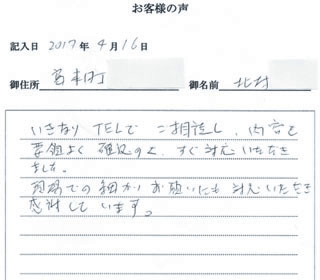 お客様の声
記入日 2017年4月16日
御住所 宮本町 御名前 北村
いきなりTELでご相談し、内容を
要領よく確認の上、すぐ対応いただき
ました。
現場での細かいお願いにも対応いただき
感謝しています。